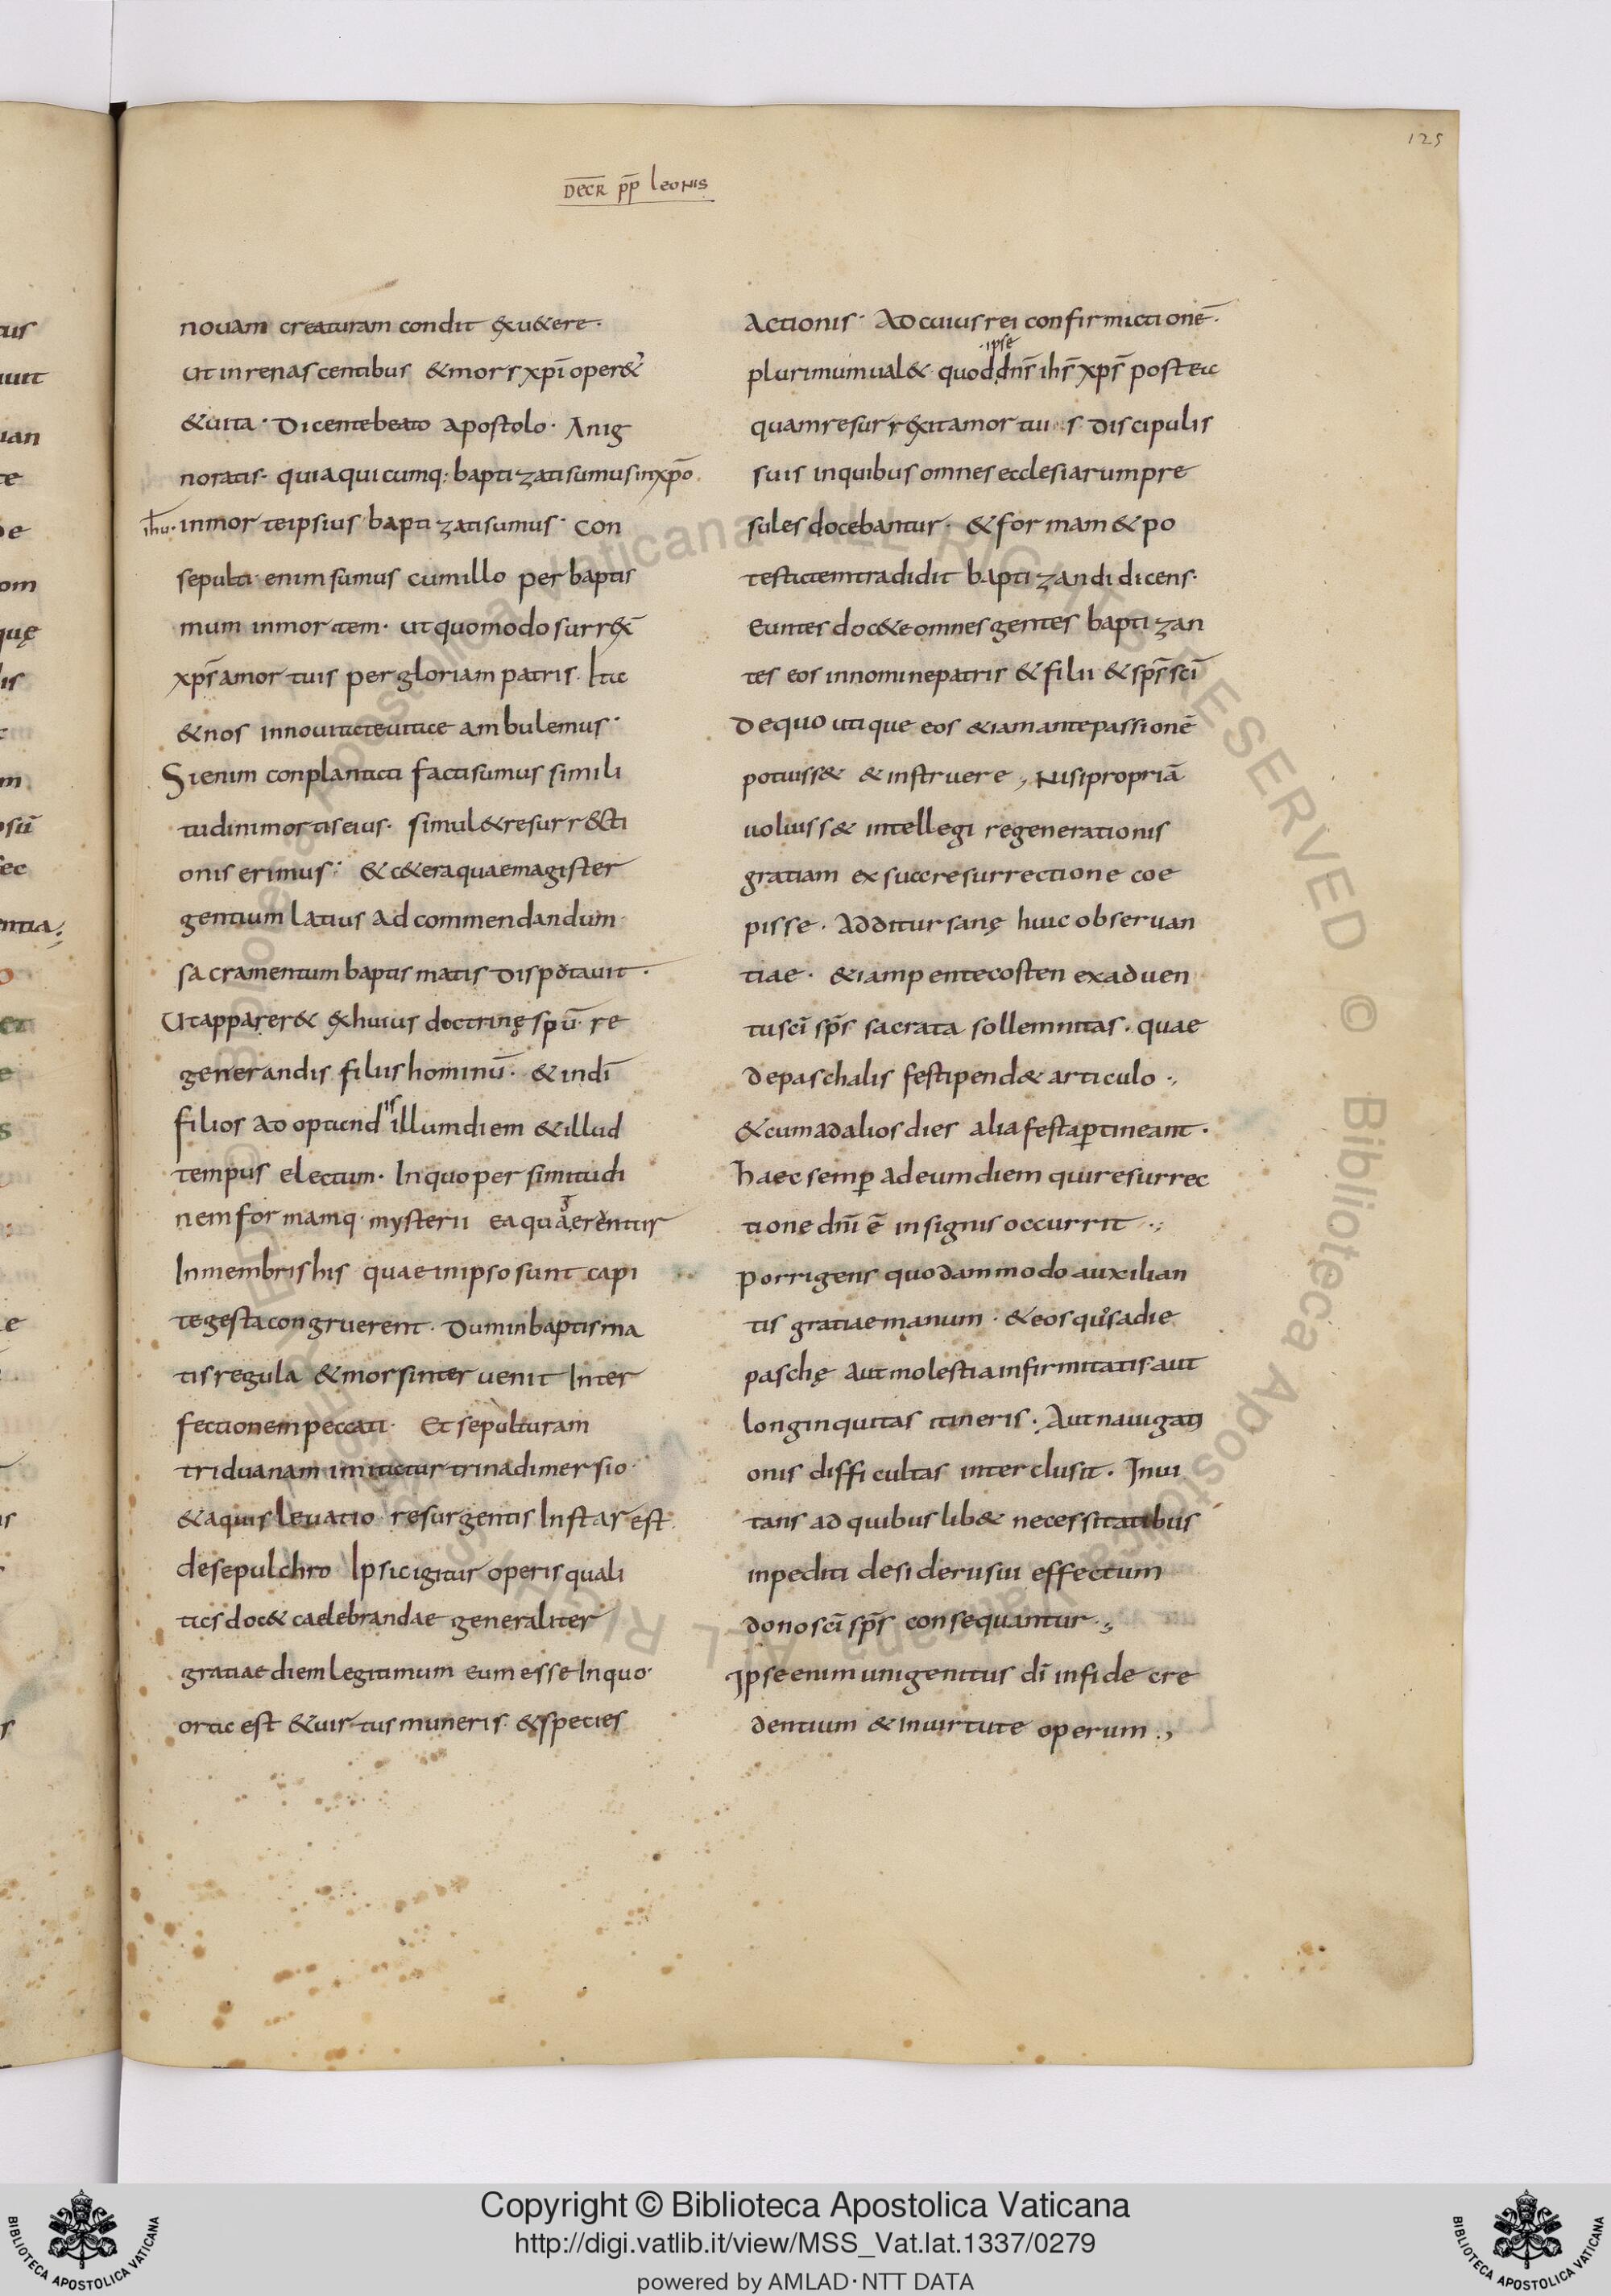 125
DECR pp̄ leonis
nouam creaturam condit ex u&ere·
ut in renascentibus & mors xp̄i oper&
& uita · Dicente beato apostolo · An ig
noratis · quia quicumq: baptizati sumus in xp̄o
ih̄u · in morte ipsius baptizati sumus · Con
sepulti enim sumus cum illo per baptis
mum in mortem · ut quomodo surrex̄
xp̄s a mortuis per gloriam patris · Ita
& nos in nouitate uitae ambulemus ·
Si enim conplantati facti sumus simili
tudini mortis eius · simul & resurrecti
onis erimus · & c&era quae magister
gentium latius ad commendandum
sacramentum baptismatis disputauit ·
Ut apparer& ex huius doctrinę spū · re
generandis filiis hominū · & in dī
filios adoptandis illum diem & illud
tempus electum · In quo per simitudi
nem formamq· mysterii ea quae gerentur
In membris his quae in ipso sunt capi
te gesta congruerent · Dum in baptisma
tis regula & mors interuenit Inter
fectionem peccati · Et sepulturam
triduanam imitatur trina dimersio ·
& aquis leuatio resurgentis Instar est
de sepulchro Ipsa igitur operis quali
tas doc& caelebrandae generaliter
gratiae diem legitimum eum esse In quo
orta est & uirtus muneris & species
actionis · Ad cuius rei confirmationē ·
·ipse
plurimum ual& quod dn̄s ih̄s xp̄s postea
quam resurrexit a mortuis discipulis
suis in quibus omnes ecclesiarum pre
sules docebantur · & formam & po
testatem tradidit baptizandi dicens ·
Euntes doc&e omnes gentes baptizan
tes eos in nomine patris & filii & sp̄s sc̄i
De quo utique eos &iam ante passionē
potuiss& & instruere, Nisi propriā
uoluiss& intellegi regenerationis
gratiam ex sua resurrectione coe
pisse · Additur sanę huic obseruan
tiae · &iam pentecosten ex aduen
tu sc̄i sp̄s sacrata sollemnitas · quae
de paschalis festi pend& articulo ·,
& cum ad alios dies alia festa p̄tineant ·
haec semp̄ ad eum diem qui resurrec
tione dn̄i ē insignis occurrit ·,
porrigens quodammodo auxilian
tis gratiae manum · & eos quos a die
paschę aut molestia infirmitatis aut
longinquitas itineris · Aut nauigati
onis difficultas interclusit · Inui
tans ad quibuslib& necessitatibus
inpediti desiderii sui effectum
dono sc̄i sp̄s consequantur ·,
Ipse enim unigenitus dī in fide cre
dentium & in uirtute operum ·,
Copyright © Biblioteca Apostolica Vaticana
http://digi.vatlib.it/view/MSS_Vat.lat.1337/0279
powered by AMLAD·NTT DATA